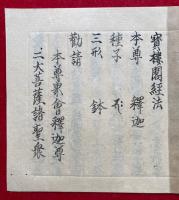 寶樓閣經法
本尊 釋迦
種子
三形 鉢
勸請
本尊界會釋迦尊
二大菩薩諸聖衆